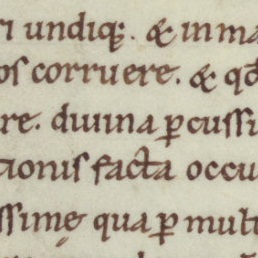 ri undiq;. & in ma
os corruere. & qd
re. diuina ꝑcussi
tionis facta occu
ssimę qua ꝑ mult